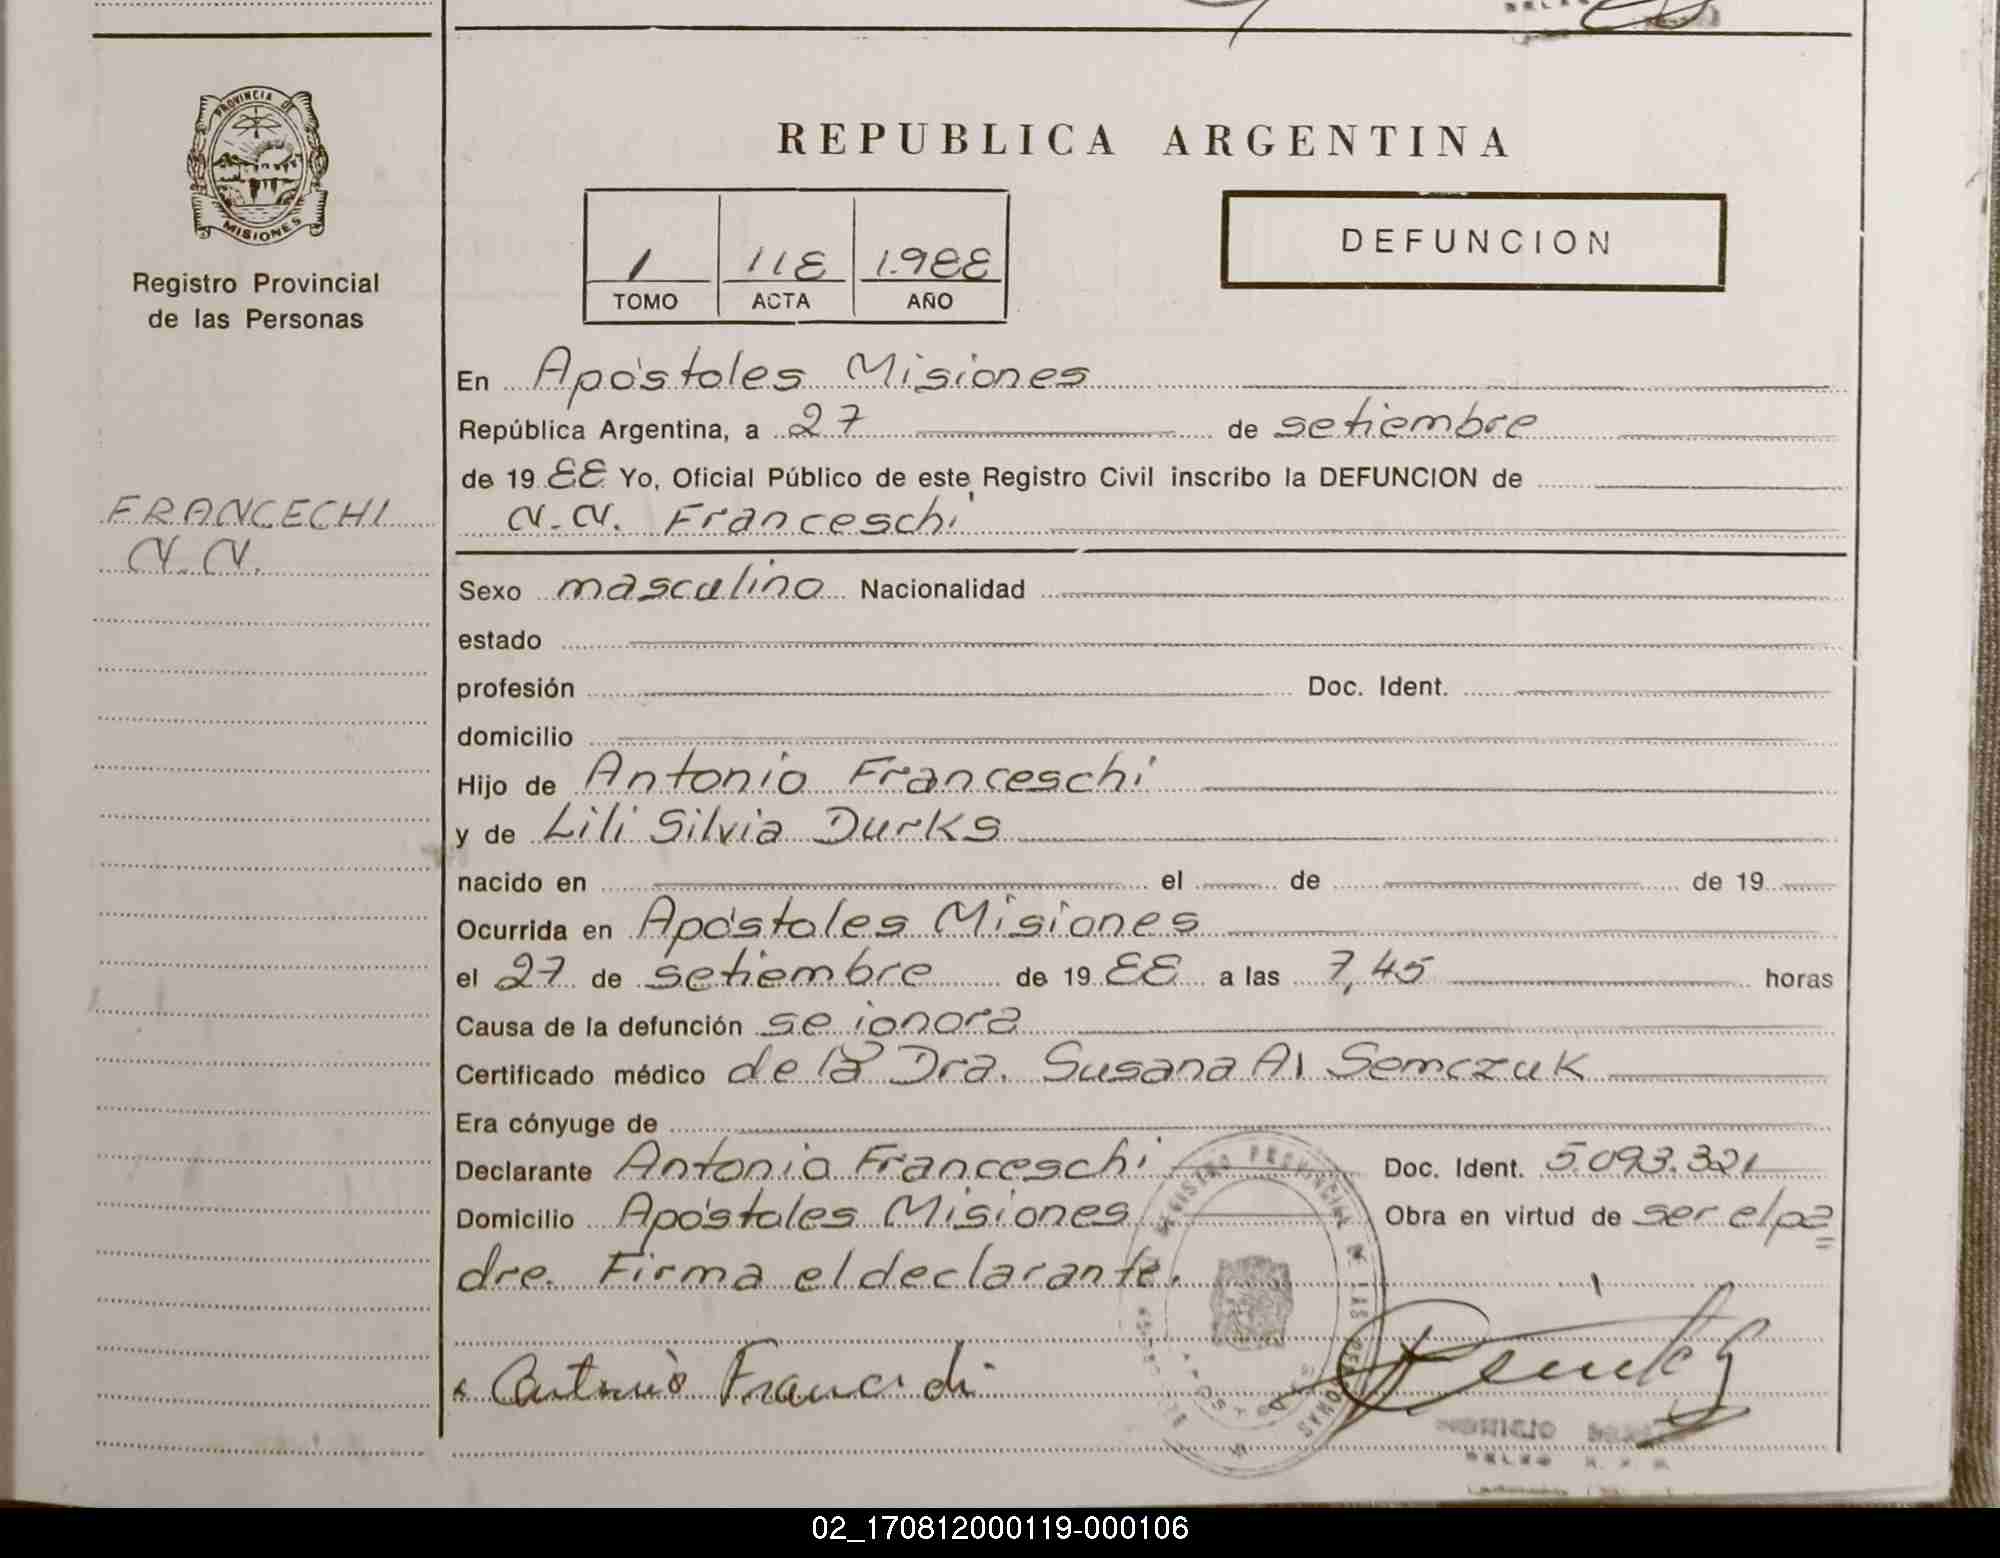 PROVINCIA DE
MISIONES
Registro Provincial
de las Personas
FRANCECHI
N.N.
REPUBLICA ARGENTINA
1 118 1.988
TOMO ACTA AÑO
DEFUNCION
En Apóstoles Misiones
República Argentina, a 27 de setiembre
de 19 88 Yo, Oficial Público de este Registro Civil inscribo la DEFUNCION de
N.N. Franceschi
Sexo masculino Nacionalidad
estado
profesión Doc. Ident.
domicilio
Hijo de Antonio Franceschi
y de Lili Silvia Durks
nacido en el de de 19
Ocurrida en Apóstoles Misiones
el 27 de setiembre de 19 88 a las 7,45 horas
Causa de la defunción se ignora
Certificado médico de la Dra. Susana A. Semczuk
Era cónyuge de
Declarante Antonio Franceschi Doc. Ident. 5.093.321
Domicilio Apóstoles Misiones Obra en virtud de ser el pa
dre. Firma el declarante.
REGISTRO PROVINCIAL DE LAS PERSONAS
Antonio
02_170812000119-000106